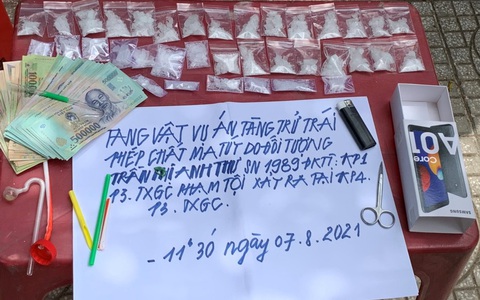 TANG VẬT VỤ ÁN TÀNG TRỮ TRÁI
PHÉP CHẤT MA TÚY DO ĐỐI TƯỢNG
TRẦN THỊ ANH THƯ SN 1989 HKTT: KP1
P3. TXGC PHẠM TỘI XẢY RA TẠI KP4.
P3. TXGC.
- 11h30 ngày 07.8.2021
A01
Core
SAMSUNG
500000